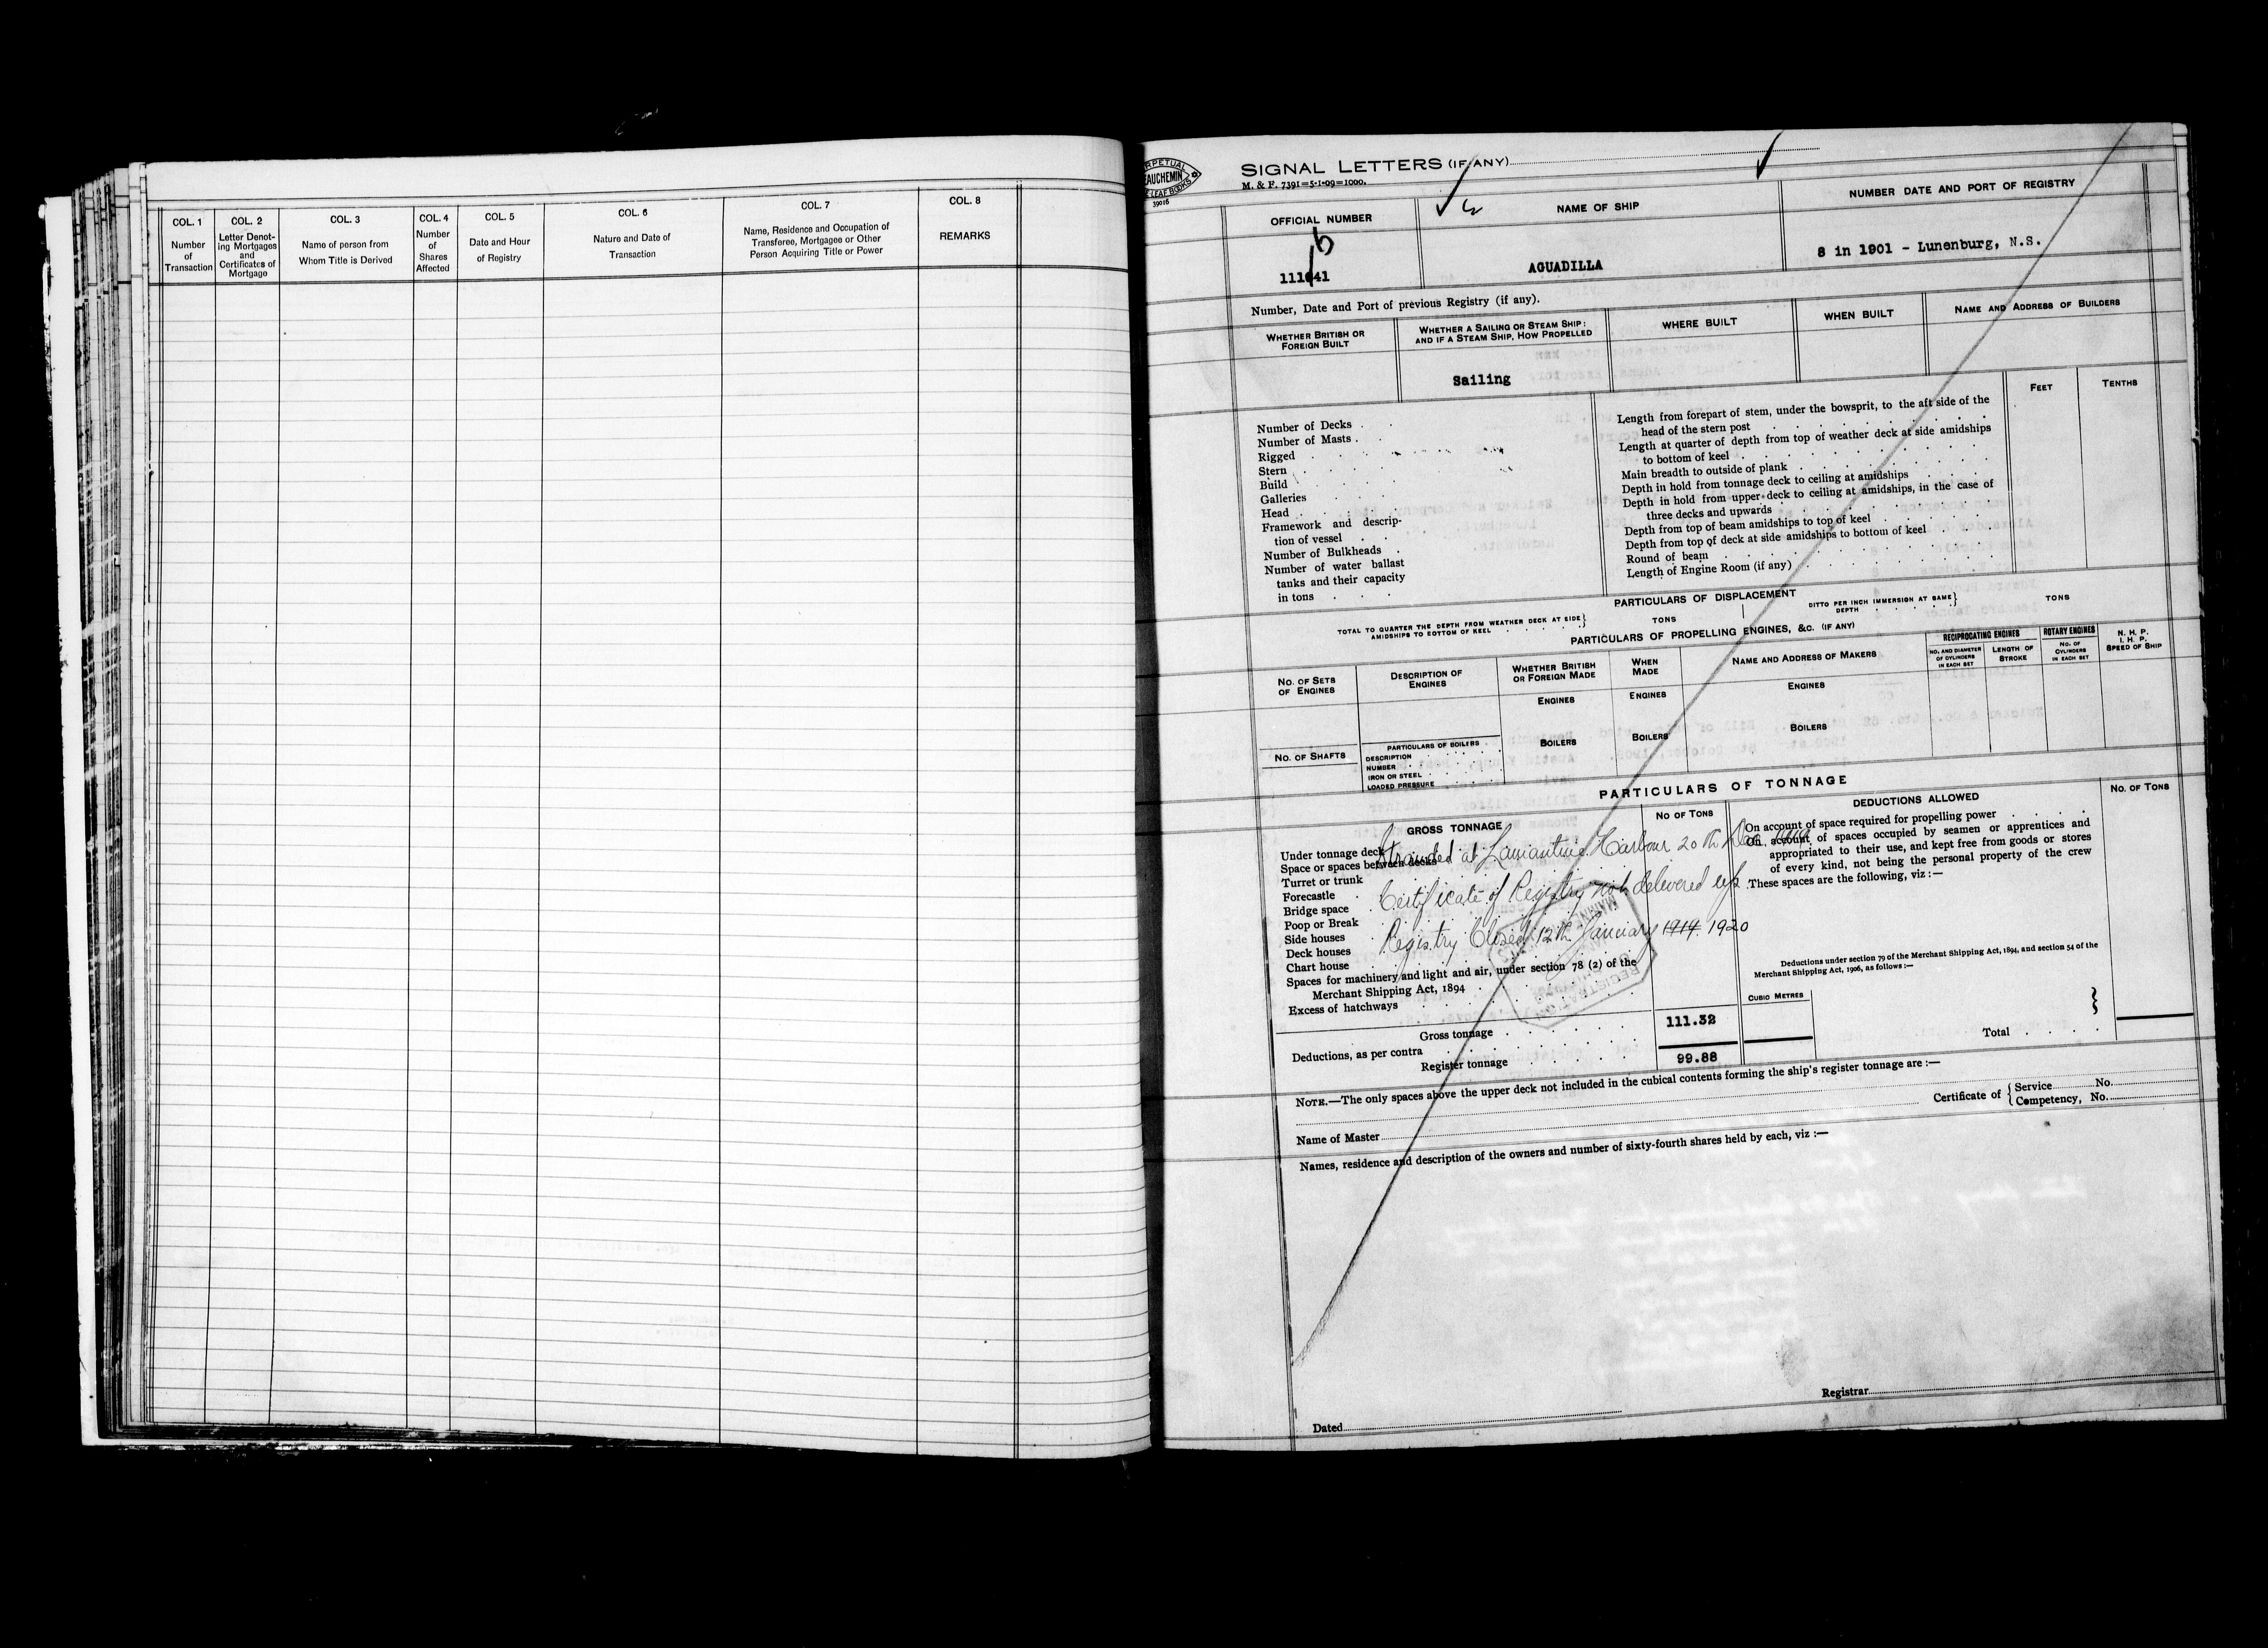 COL. 1
Number
of
Transaction
COL. 2
Letter Denot-
ing Mortgages
and
Certificates of
Mortgage
COL. 3
Name of person from
Whom Title is Derived
COL. 4
Number
of
Shares
Affected
COL. 5
Date and Hour
of Registry
COL. 6
Nature and Date of
Transaction
COL. 7
Name, Residence and Occupation of
Transferee, Mortgagee or Other
Person Acquiring Title or Power
COL. 8
REMARKS
SIGNAL LETTERS (IF ANY)
M. & F. 7391=5-1-09=1000.
39016
OFFICIAL NUMBER
111041
6
NAME OF SHIP
AGUADILLA
NUMBER DATE AND PORT OF REGISTRY
8 in 1901 - Lunenburg, N.S.
Number, Date and Port of previous Registry (if any).
WHETHER BRITISH OR
FOREIGN BUILT
WHETHER A SAILING OR STEAM SHIP:
AND IF A STEAM SHIP, HOW PROPELLED
Sailing
WHERE BUILT
WHEN BUILT
NAME AND ADDRESS OF BUILDERS
Number of Decks
Number of Masts
Rigged
Stern
Build
Galleries
Head
Framework and descrip-
tion of vessel
Number of Bulkheads
Number of water ballast
tanks and their capacity
in tons
FEET
TENTHS
Length from forepart of stem, under the bowsprit, to the aft side of the
head of the stern post
Length at quarter of depth from top of weather deck at side amidships
to bottom of keel
Main breadth to outside of plank
Depth in hold from tonnage deck to ceiling at amidships
Depth in hold from upper deck to ceiling at amidships, in the case of
three decks and upwards
Depth from top of beam amidships to top of keel
Depth from top of deck at side amidships to bottom of keel
Round of beam
Length of Engine Room (if any)
PARTICULARS OF DISPLACEMENT
TOTAL TO QUARTER THE DEPTH FROM WEATHER DECK AT SIDE
AMIDSHIPS TO BOTTOM OF KEEL
TONS
DITTO PER INCH IMMERSION AT SAME
DEPTH
TONS
PARTICULARS OF PROPELLING ENGINES, &C. (IF ANY)
NO. OF SETS
OF ENGINES
DESCRIPTION OF
ENGINES
WHETHER BRITISH
OR FOREIGN MADE
WHEN
MADE
NAME AND ADDRESS OF MAKERS
RECIPROCATING ENGINES
NO. AND DIAMETER
OF CYLINDERS
IN EACH SET
LENGTH OF
STROKE
ROTARY ENGINES
NO. OF
CYLINDERS
IN EACH SET
N. H. P.
I. H. P.
SPEED OF SHIP
ENGINES
ENGINES
ENGINES
NO. OF SHAFTS
PARTICULARS OF BOILERS
DESCRIPTION
NUMBER
IRON OR STEEL
LOADED PRESSURE
BOILERS
BOILERS
BOILERS
PARTICULARS OF TONNAGE
GROSS TONNAGE
NO OF TONS
DEDUCTIONS ALLOWED
NO. OF TONS
Under tonnage deck
Space or spaces between decks
Turret or trunk
Forecastle
Bridge space
Poop or Break
Side houses
Deck houses
Chart house
Spaces for machinery and light and air, under section 78 (2) of the
Merchant Shipping Act, 1894
Excess of hatchways
Stranded at Harbour 20th Dec.
Certificate of Registry not delivered up.
Registry Closed 12th January 1919 1920
Gross tonnage
111.32
Deductions, as per contra
Register tonnage
99.88
On account of space required for propelling power
On account of spaces occupied by seamen or apprentices and
appropriated to their use, and kept free from goods or stores
of every kind, not being the personal property of the crew
These spaces are the following, viz :—
Deductions under section 79 of the Merchant Shipping Act, 1894, and section 54 of the
Merchant Shipping Act, 1906, as follows :—
CUBIC METRES
Total
NOTE.—The only spaces above the upper deck not included in the cubical contents forming the ship's register tonnage are :—
Name of Master
Certificate of { Service No.
Competency, No.
Names, residence and description of the owners and number of sixty-fourth shares held by each, viz :—
Registrar
Dated